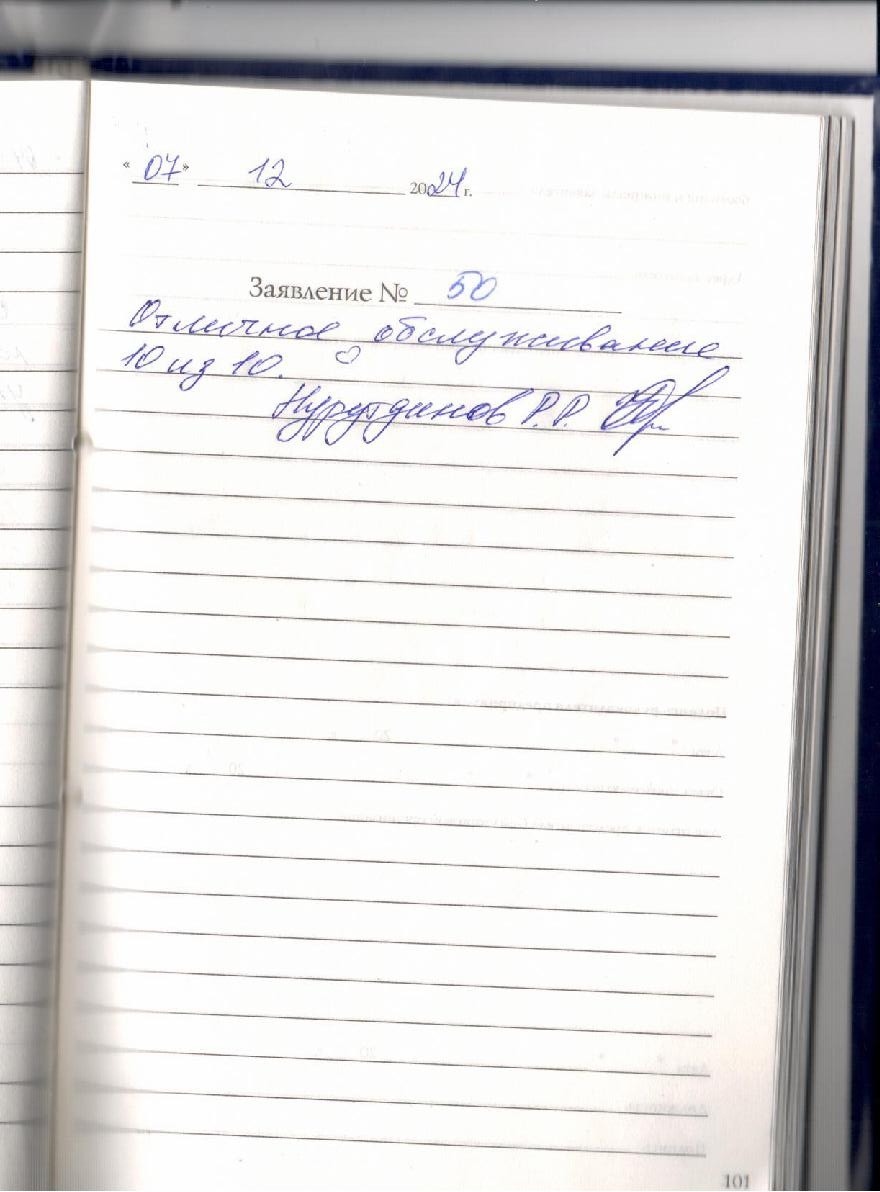 «07» 12 2024 г.
Заявление № 50
Отличное обслуживание
10 из 10. ♡
Нурутдинов Р.Р.
101